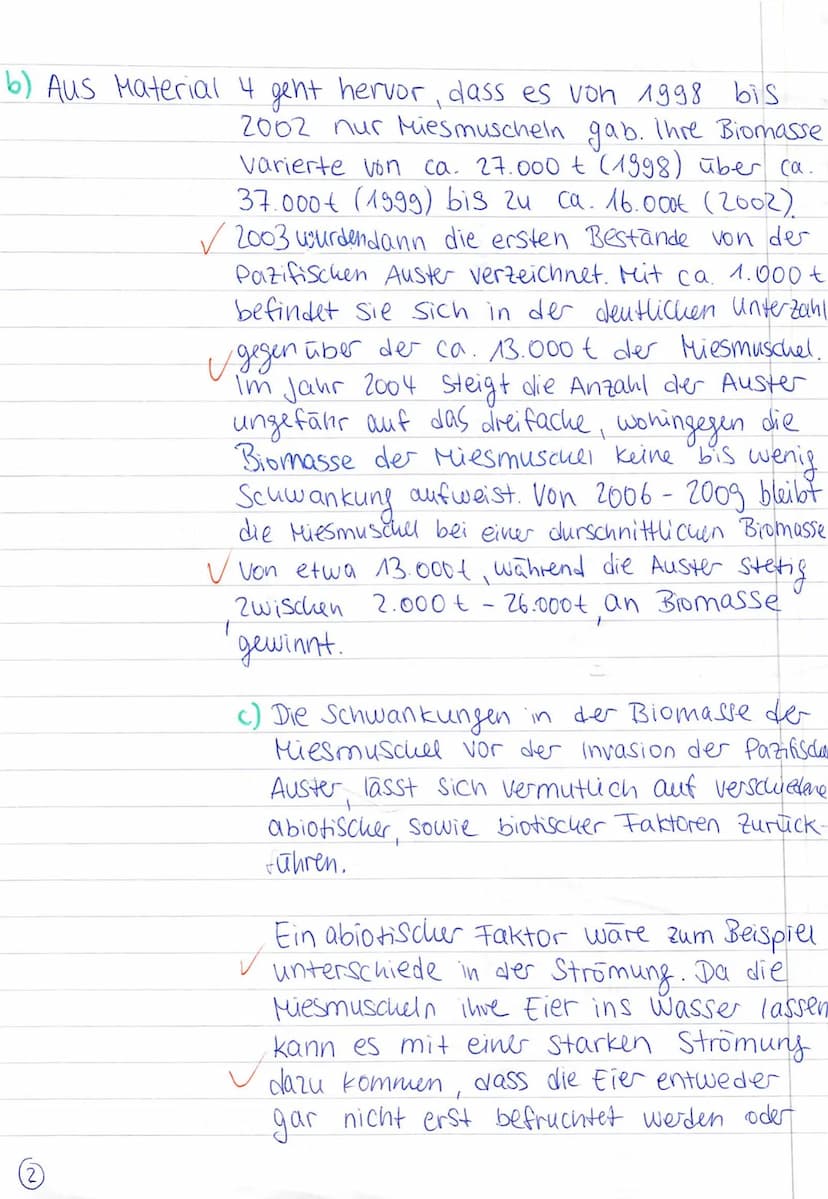 b) Aus Material 4 geht hervor, dass es von 1998 bis
2002 nur Miesmuscheln gab. Ihre Biomasse
varierte von ca. 27.000 t (1998) über ca.
37.000t (1999) bis zu ca. 16.000t (2002).
2003 wurden dann die ersten Bestände von der
Pazifischen Auster verzeichnet. Mit ca. 1.000 t
befindet sie sich in der deutlichen Unterzahl
gegenüber der ca. 13.000 t der Miesmuschel.
Im Jahr 2004 steigt die Anzahl der Auster
ungefähr auf das dreifache, wohingegen die
Biomasse der Miesmuschel keine bis wenig
Schwankung aufweist. Von 2006 - 2009 bleibt
die Miesmuschel bei einer durschnittlichen Biomasse
von etwa 13.000t, während die Auster stetig
, zwischen 2.000 t - 26.000t, an Biomasse
gewinnt.
c) Die Schwankungen in der Biomasse der
Miesmuschel vor der Invasion der Pazifische
Auster, lässt sich vermutlich auf verschiedene
abiotischer, sowie biotischer Faktoren zurück-
führen.
Ein abiotischer Faktor wäre zum Beispiel
unterschiede in der Strömung. Da die
Miesmuscheln ihre Eier ins Wasser lassen
kann es mit einer starken Strömung
dazu kommen, dass die Eier entweder
gar nicht erst befruchtet werden oder
2